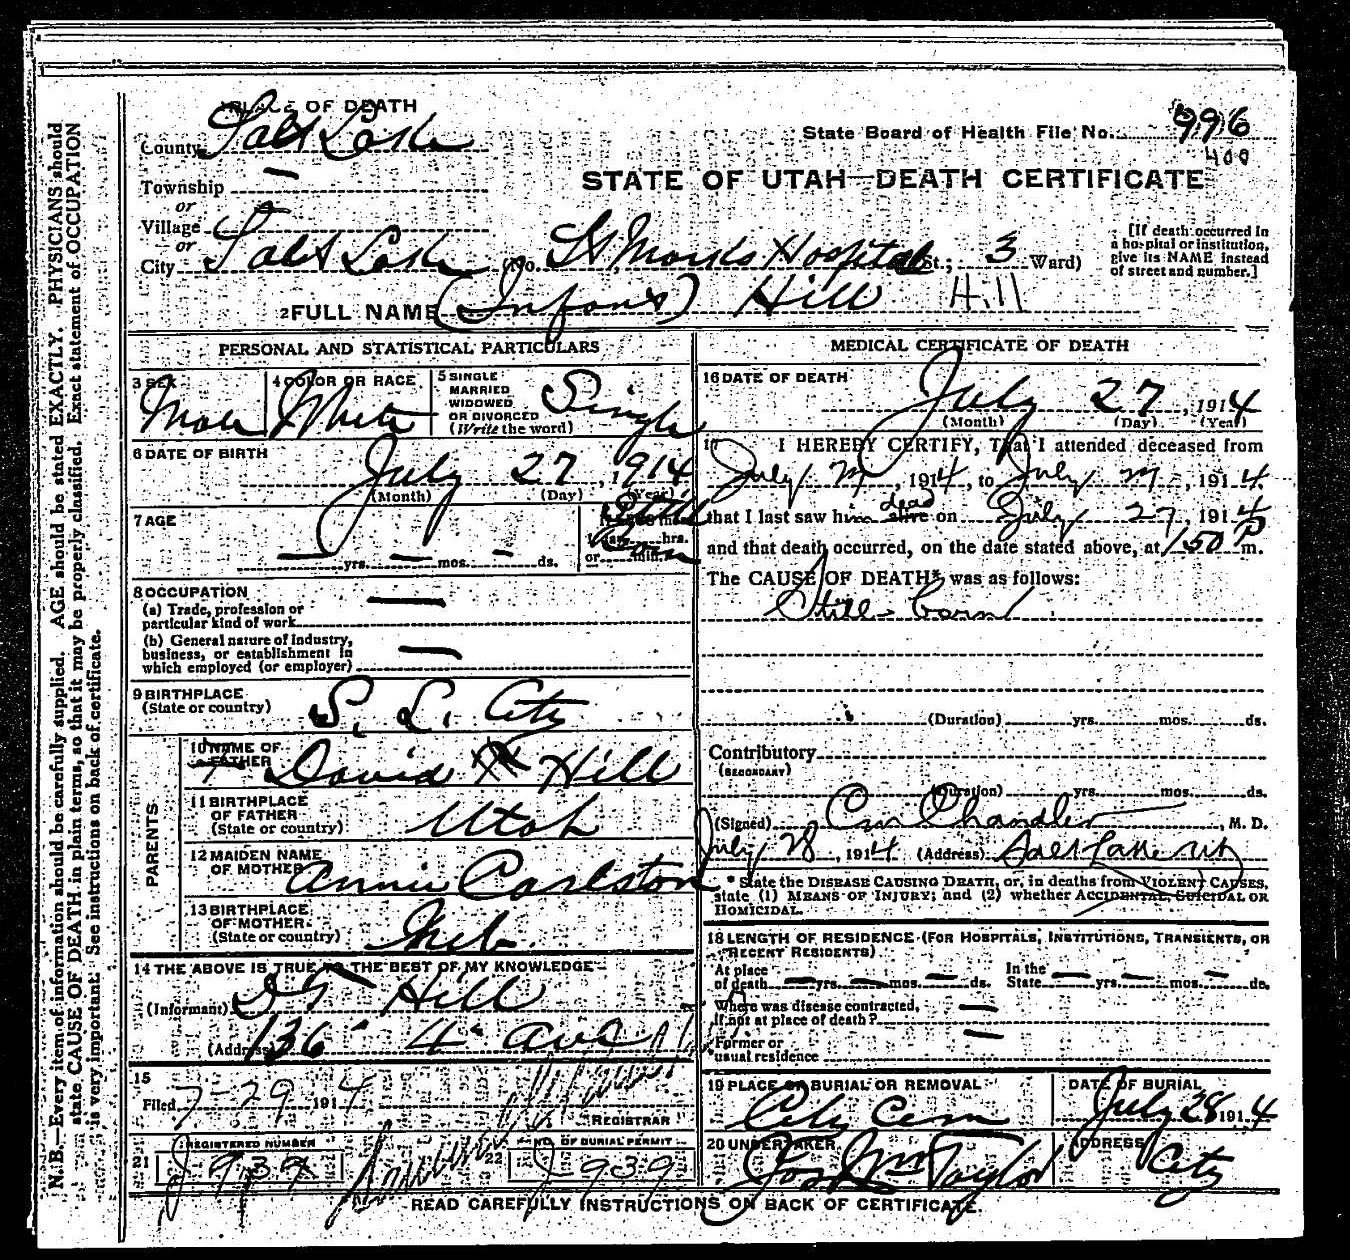 PLACE OF DEATH
County Salt Lake
State Board of Health File No. 996
400
Township —
or
STATE OF UTAH—DEATH CERTIFICATE
Village
or
City Salt Lake (No. St Marks Hospital St; 3 Ward)
[If death occurred in a hospital or institution, give its NAME instead of street and number.]
2 FULL NAME (Infant) Hill Hill
PERSONAL AND STATISTICAL PARTICULARS
3 SEX Male
4 COLOR OR RACE White
5 SINGLE MARRIED WIDOWED OR DIVORCED (Write the word) Single
6 DATE OF BIRTH July 27, 1914
(Month) (Day) (Year)
7 AGE — yrs. — mos. - ds.
Still Born
hrs.
or min.
8 OCCUPATION
(a) Trade, profession or particular kind of work —
(b) General nature of industry, business, or establishment in which employed (or employer) —
9 BIRTHPLACE
(State or country) S. L. City
PARENTS
10 NAME OF FATHER David Hill
11 BIRTHPLACE OF FATHER
(State or country) Utah
12 MAIDEN NAME OF MOTHER Annie Carlston
13 BIRTHPLACE OF MOTHER
(State or country)
14 THE ABOVE IS TRUE TO THE BEST OF MY KNOWLEDGE
(Informant) Hill
(Address) 136 4 ave
15
Filed 7-29 1914
REGISTRAR
21 REGISTERED NUMBER
22 NO. OF BURIAL PERMIT J 939
MEDICAL CERTIFICATE OF DEATH
16 DATE OF DEATH
July 27, 1914
(Month) (Day) (Year)
17 I HEREBY CERTIFY, That I attended deceased from
July 27, 1914, to July 27, 1914
that I last saw him alive dead on July 27, 1914
and that death occurred, on the date stated above, at 1 50 P m.
The CAUSE OF DEATH* was as follows:
Still-born
(Duration) yrs. mos. ds.
Contributory
(SECONDARY)
(Duration) yrs. mos. ds.
(Signed) Chandler, M. D.
July 28, 1914 (Address) Salt Lake
* State the DISEASE CAUSING DEATH, or, in deaths from VIOLENT CAUSES, state (1) MEANS OF INJURY; and (2) whether ACCIDENTAL, SUICIDAL OR HOMICIDAL.
18 LENGTH OF RESIDENCE (FOR HOSPITALS, INSTITUTIONS, TRANSIENTS, OR RECENT RESIDENTS)
At place of death — yrs. — mos. — ds. In the State — yrs. — mos. - ds.
Where was disease contracted, If not at place of death? —
Former or usual residence —
19 PLACE OF BURIAL OR REMOVAL City Cem
DATE OF BURIAL July 28 1914
20 UNDERTAKER Jos Wm Taylor
ADDRESS City
READ CAREFULLY INSTRUCTIONS ON BACK OF CERTIFICATE.
N. B.—Every item of information should be carefully supplied. AGE should be stated EXACTLY. PHYSICIANS should
state CAUSE OF DEATH in plain terms, so that it may be properly classified. Exact statement of OCCUPATION
is very important. See instructions on back of certificate.